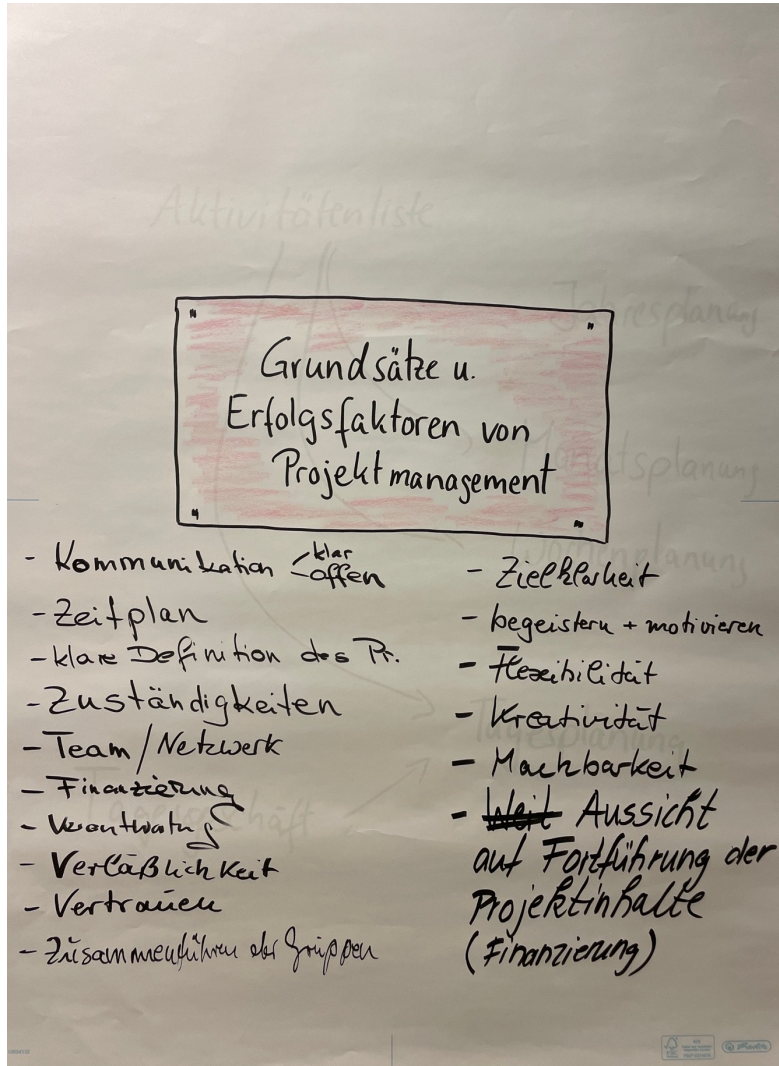 Aktivitätenliste
Jahresplanung
Grundsätze u.
Erfolgsfaktoren von
Projektmanagement
Monatsplanung
Wochenplanung
- Kommunikation klar
offen
- Zeitplan
- klare Definition des Pr.
- Zuständigkeiten
- Team / Netzwerk
- Finanzierung
- Verantwortung
- Verläßlichkeit
- Vertrauen
- Zusammenführen der Gruppen
- Zielklarheit
- begeistern + motivieren
- Flexibilität
- Kreativität
Tagesplanung
- Machbarkeit
- Weit Aussicht
auf Fortführung der
Projektinhalte
(Finanzierung)
Tagesgeschäft